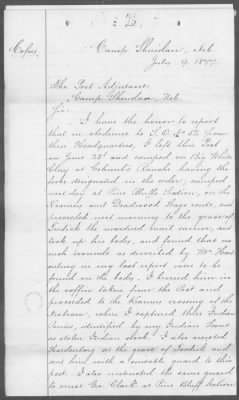 Copy.
Camp Sheridan, Neb.
July 9. 1877.
The Post Adjutant
Camp Sheridan, Neb
Sir:
I have the honor to report
that in obedience to S.O. No 52 from
these Headquarters, I left this Post
on June 23d and camped on Big White
Clay at Colomb's Ranch, having the
force designated in the order, camped
next day at Pine Bluffs Station, on the
Kearney and Deadwood Stage route, and
proceeded next morning to the grave of
the murdered mail carrier, and
took up his body, and found that no
such wounds as described by Mr
in my last report were to be
found on the body. I buried him in
the coffin taken from the Post and
proceeded to the Kearney crossing of the
Niobrara, when I captured three Indian
Ponies, identified by my Indian Scout
as stolen Indian stock. I also arrested
Hardenburg at the grave of and
sent him with a constable guard to this
post. I also instructed the same guard
to arrest Geo. Clark at Pine Bluff Station